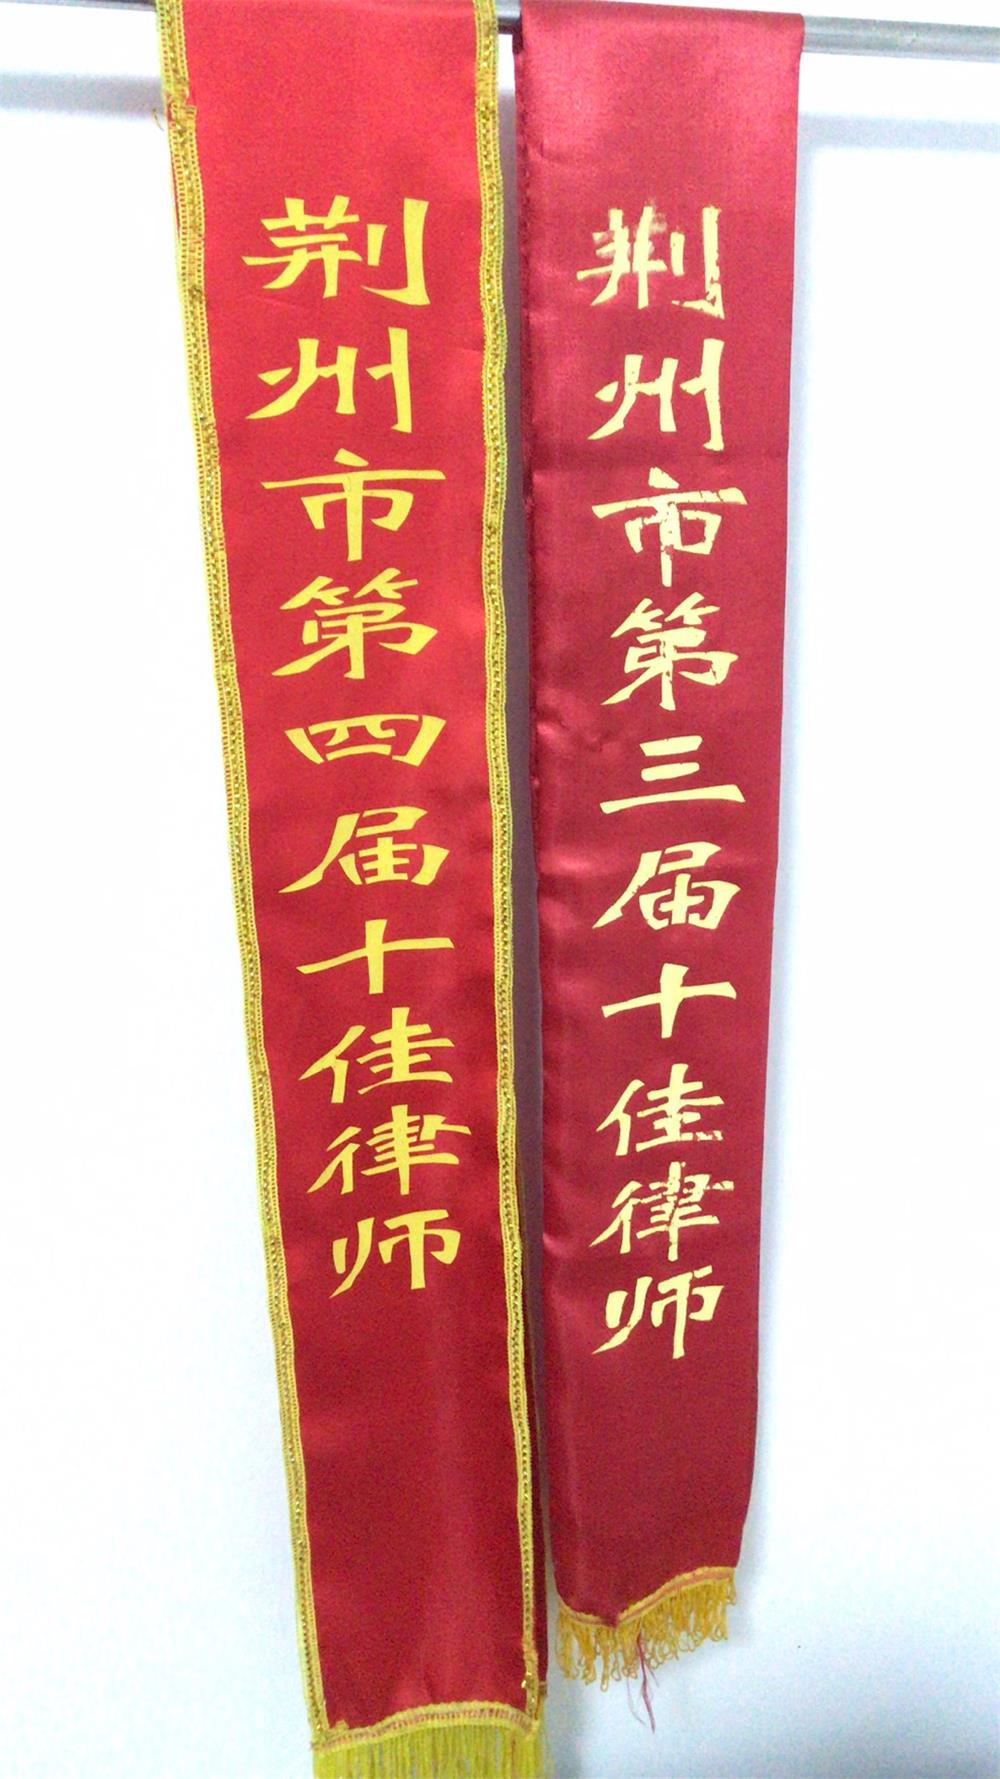 荆州市第四届十佳律师
荆州市第三届十佳律师